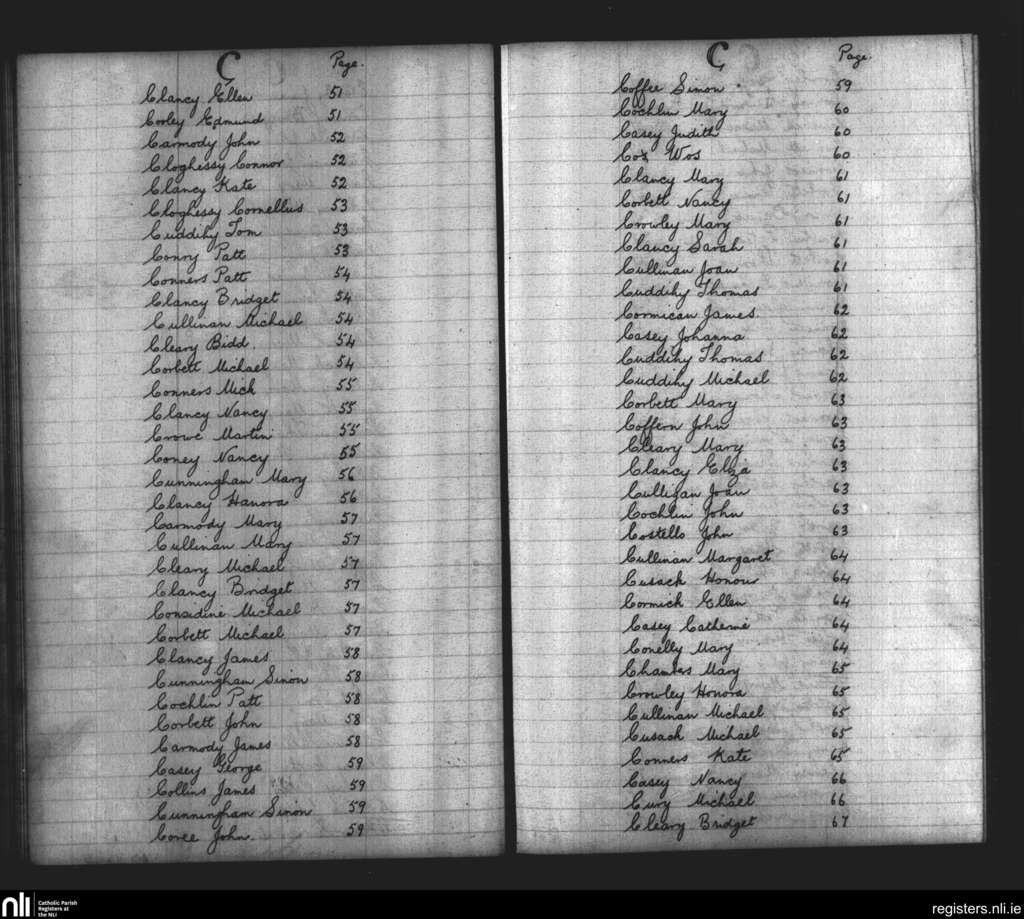 C Page.
Clancy Ellen 51
Corley Edmund 51
Carmody John 52
Cloghessy Connor 52
Clancy Kate 52
Cloghessy Cornellius 53
Cuddihy Tom 53
Conry Patt 53
Conners Patt 54
Clancy Bridget 54
Cullinan Michael 54
Cleary Bidd. 54
Corbett Michael 54
Conners Mick 55
Clancy Nancy 55
Crowe Martin 55
Coney Nancy 55
Cunningham Mary 56
Clancy Hanora 56
Carmody Mary 57
Cullinan Mary 57
Cleary Michael 57
Clancy Bridget 57
Considine Michael 57
Corbett Michael 57
Clancy James 58
Cunningham Sinon 58
Cochlin Patt 58
Corbett John 58
Carmody James 58
Casey George 59
Collins James 59
Cunningham Sinon 59
Coree John. 59
C Page.
Coffee Simon 59
Cochlin Mary 60
Casey Judith 60
Cox Wos 60
Clancy Mary 61
Corbett Nancy 61
Crowley Mary 61
Clancy Sarah 61
Cullinan Joan 61
Cuddihy Thomas 61
Cormican James. 62
Casey Johanna 62
Cuddihy Thomas 62
Cuddihy Michael 62
Corbett Mary 63
Coffern John 63
Cleary Mary 63
Clancy Eliza 63
Culligan Joan 63
Cochlin John 63
Costello John 63
Cullinan Margaret 64
Cusack Honour 64
Cormick Ellen 64
Casey Catherine 64
Conelly Mary 64
Mary 65
Crowley Honora 65
Cullinan Michael 65
Cusack Michael 65
Conners Kate 65
Casey Nancy 66
Cury Michael 66
Cleary Bridget 67
nli Catholic Parish
Registers at
the NLI
registers.nli.ie